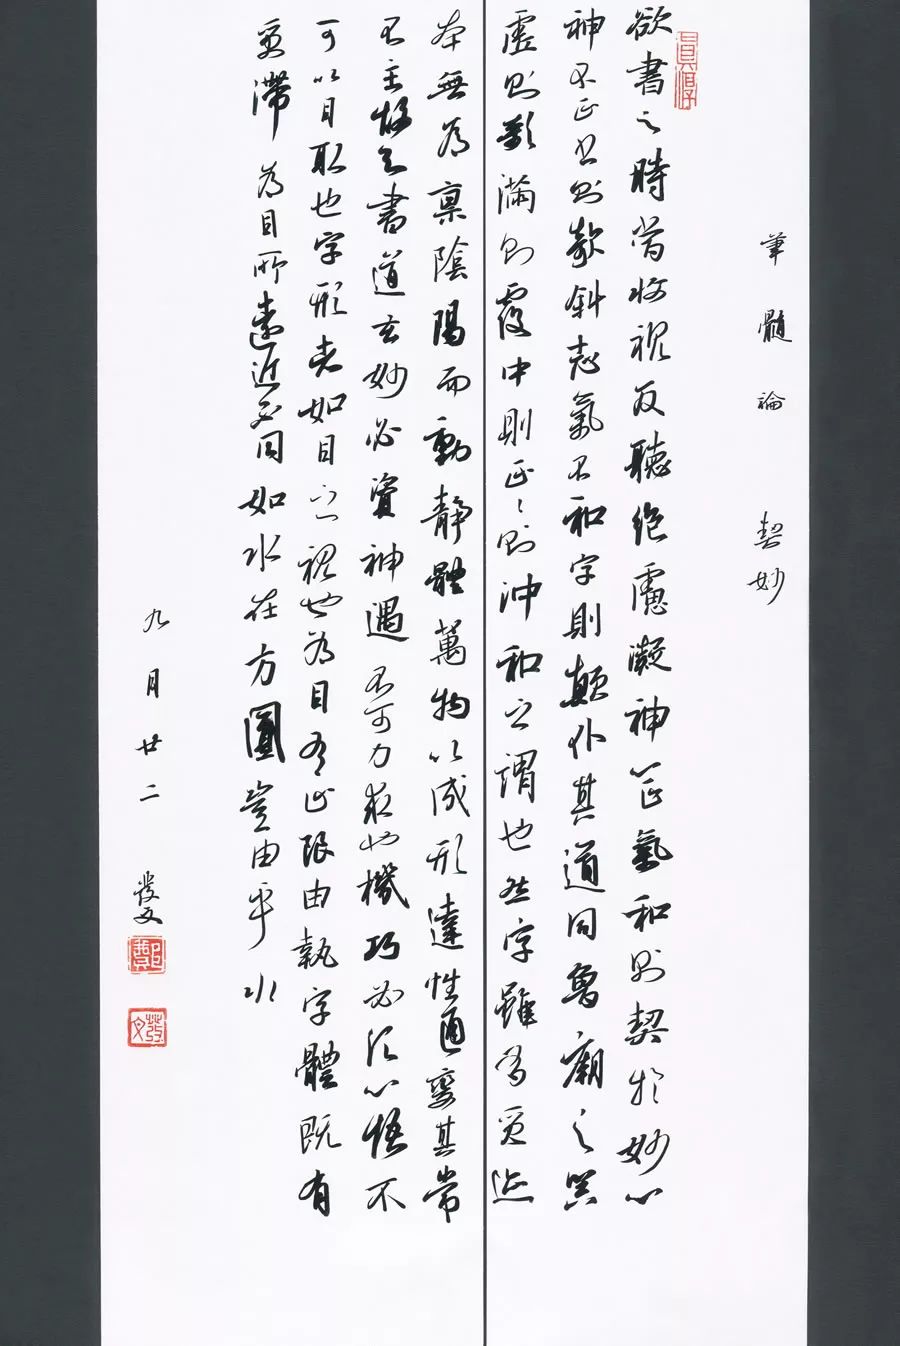 筆髓論 契妙
欲書之時當收視反聽絶慮凝神心正氣和則契於妙心
神不正書則欹斜志氣不和字則顛仆其道同魯廟之器
虛則欹滿則覆中則正正則沖和之謂也然字雖有質迹
本無為稟陰陽而動靜體萬物以成形達性通變其常
不主故知書道玄妙必資神遇不可力求也機巧必須心悟不
可以目取也字形者如目之視也為目有止限由執字體既有
質滯為目所遠近不同如水在方圓豈由乎水
九月廿二 發文
鄭